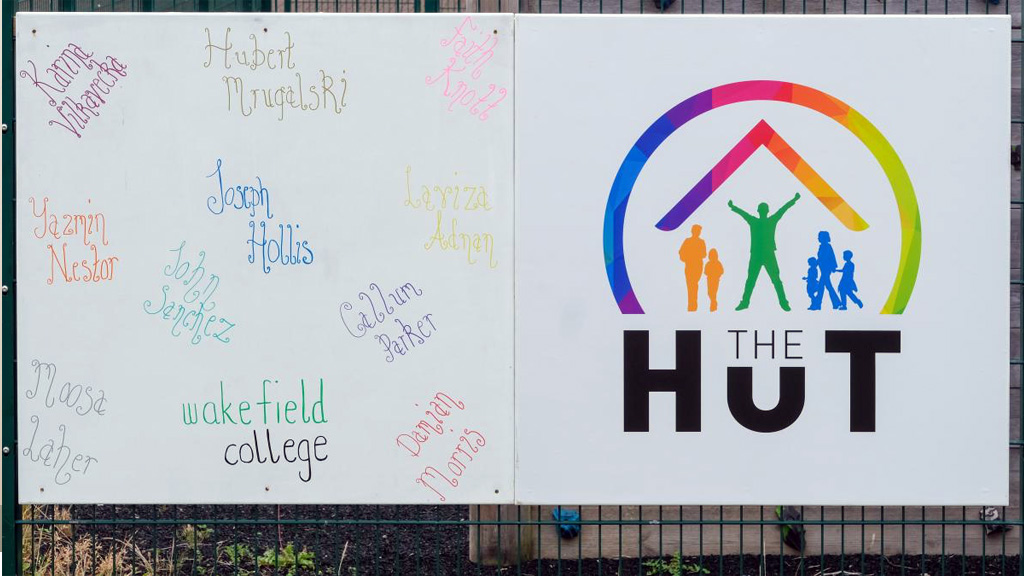 Karina
Vilkavecka
Hubert
Mrugalski
Faith
Knott
Yazmin
Nestor
Joseph
Hollis
Laviza
Adnan
John
Sanchez
Callum
Parker
Moosa
Laher
wakefield
college
Damian
Morris
THE
HUT